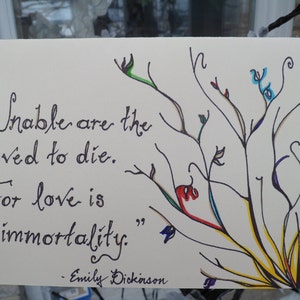 Unable are the
ved to die.
For love is
immortality."
- Emily Dickinson